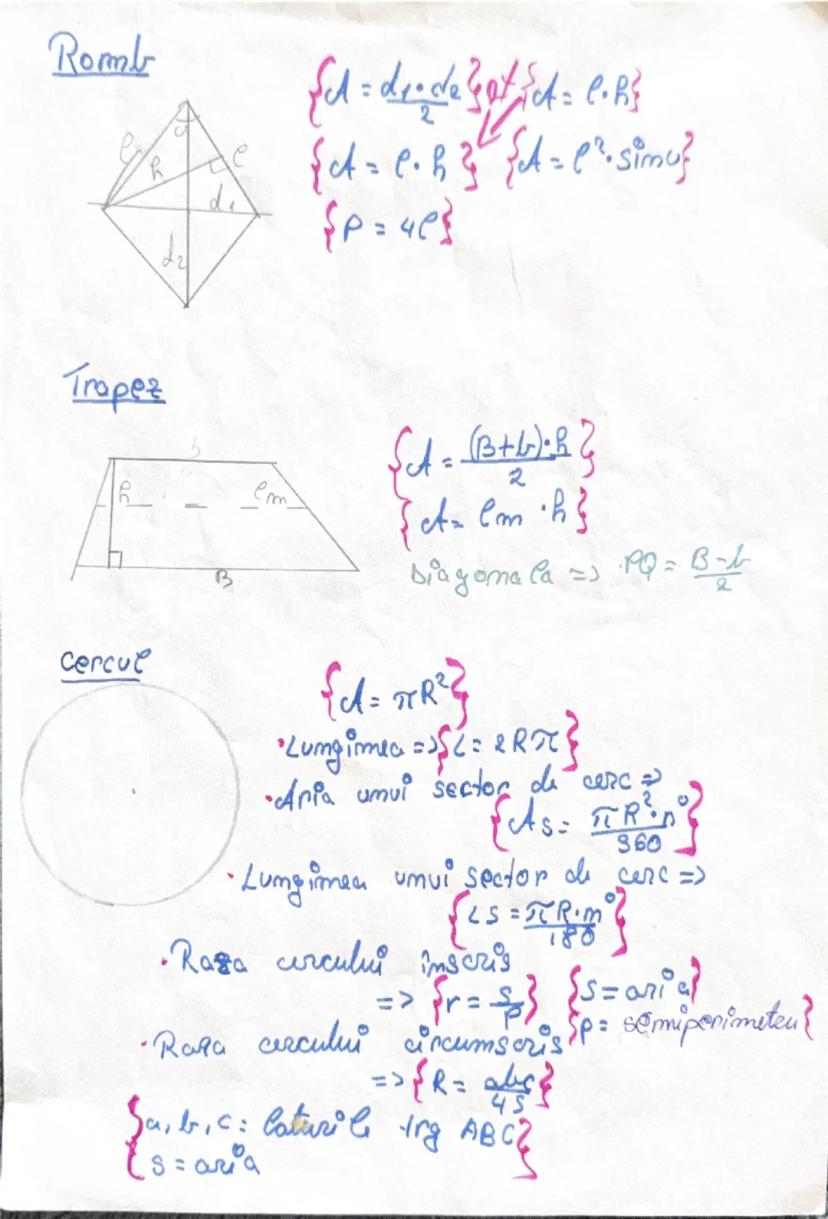 Romb
{A = d₁·d₂/2} {A = l·h}
{A = l·h} {A = l²·sin u}
{P = 4l}
u
l
h
l
d₁
d₂
Trapez
b
h
lm
B
{A = (B+b)·h/2}
{A = lm·h}
Diagonala => PQ = B-b/2
cercul
{A = πR²}
·Lungimea => {L = 2Rπ}
·Aria unui sector de cerc =>
{As = πR²·n°/360}
·Lungimea unui sector de cerc =>
{LS = πR·n°/180}
·Raza cercului înscris
=> {r = s/p} {S = aria}
{p = semiperimetru}
·Raza cercului circumscris
=> {R = abc/4S}
{a, b, c: laturile trg ABC}
{s = aria